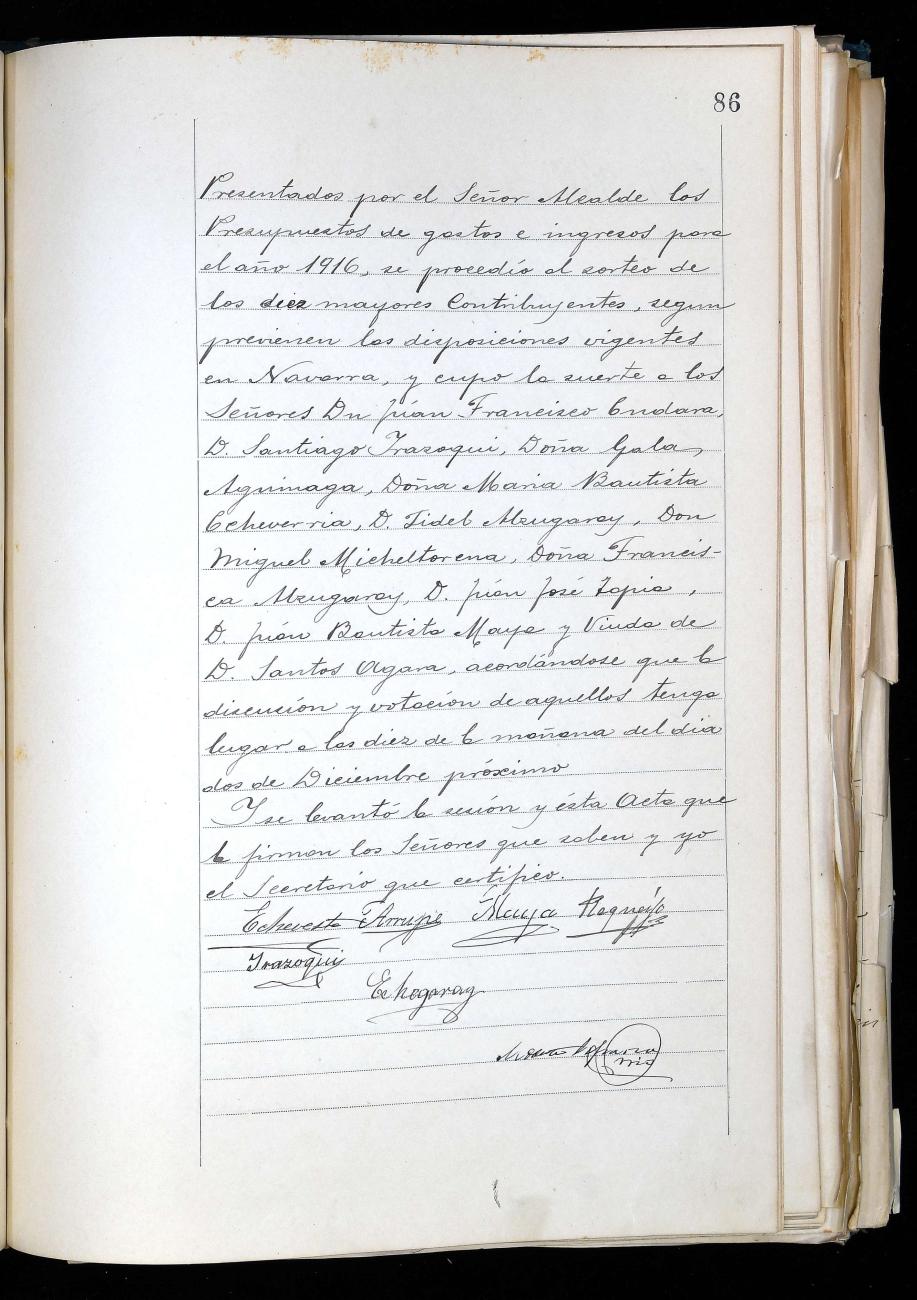 86
Presentados por el Señor Alcalde los
Presupuestos de gastos e ingresos para
el año 1916, se procedio al sorteo de
los diez mayores Contribuyentes, segun
previenen las disposiciones vigentes
en Navarra, y cupo la suerte a los
Señores Dn Júan Francisco Endara,
D. Santiago Irazoqui, Doña Gala
Aguinaga, Doña Maria Bautista
Echeverria, D. Fidel Alzugaray, Don
Miguel Micheltorena, Doña Francis-
ca Alzugaray, D. Júan José Tapia,
D. Júan Bautista Maya y Viuda de
D. Santos Ozara, acordándose que la
discución y votación de aquellos tenga
lugar a las diez de la mañana del dia
dos de Diciembre próximo
Y se levantó la sesión y ésta Acta que
la firman los Señores que saben y yo
el Secretario que certifico.
Echeveste Arrupe Maya
Irazoqui
Echegaray